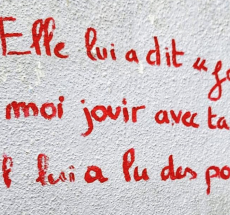 Elle lui a dit "fa
moi jouir avec ta
l lui a lu des po